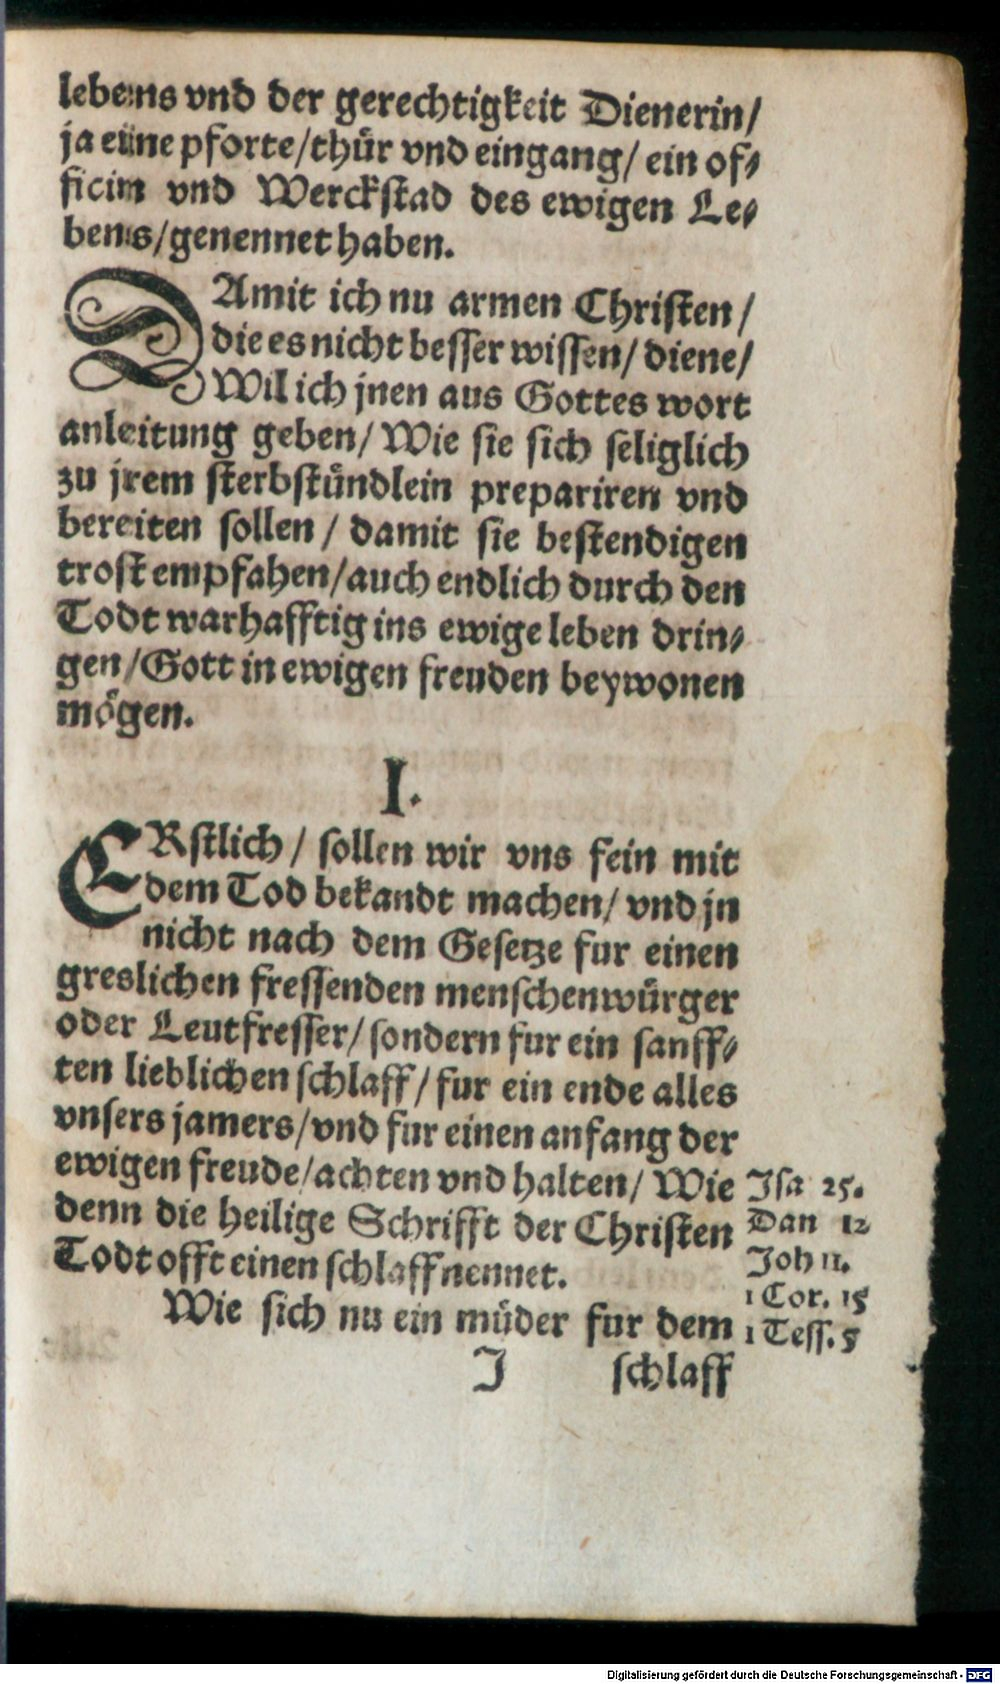 lebens vnd der gerechtigkeit Dienerin/
ja eine pforte/thür vnd eingang/ ein of-
ficin vnd Werckstad des ewigen Le-
bens/genennet haben.
DAmit ich nu armen Christen/
die es nicht besser wissen/ diene/
Wil ich jnen aus Gottes wort
anleitung geben/ Wie sie sich seliglich
zu jrem sterbstündlein prepariren vnd
bereiten sollen/ damit sie bestendigen
trost empfahen/auch endlich durch den
Todt warhafftig ins ewige leben drin-
gen/Gott in ewigen freuden beywonen
mögen.
I.
ERstlich/ sollen wir vns fein mit
dem Tod bekandt machen/ vnd jn
nicht nach dem Gesetze fur einen
greslichen fressenden menschenwürger
oder Leutfresser/sondern fur ein sanff-
ten lieblichen schlaff/ fur ein ende alles
vnsers jamers/vnd fur einen anfang der
ewigen freude/achten vnd halten/ Wie
denn die heilige Schrifft der Christen
Todt offt einen schlaff nennet.
Isa 25.
Dan 12
Joh 11.
1 Cor. 15
1 Tess. 5
Wie sich nu ein müder fur dem
I schlaff
Digitalisierung gefördert durch die Deutsche Forschungsgemeinschaft - DFG